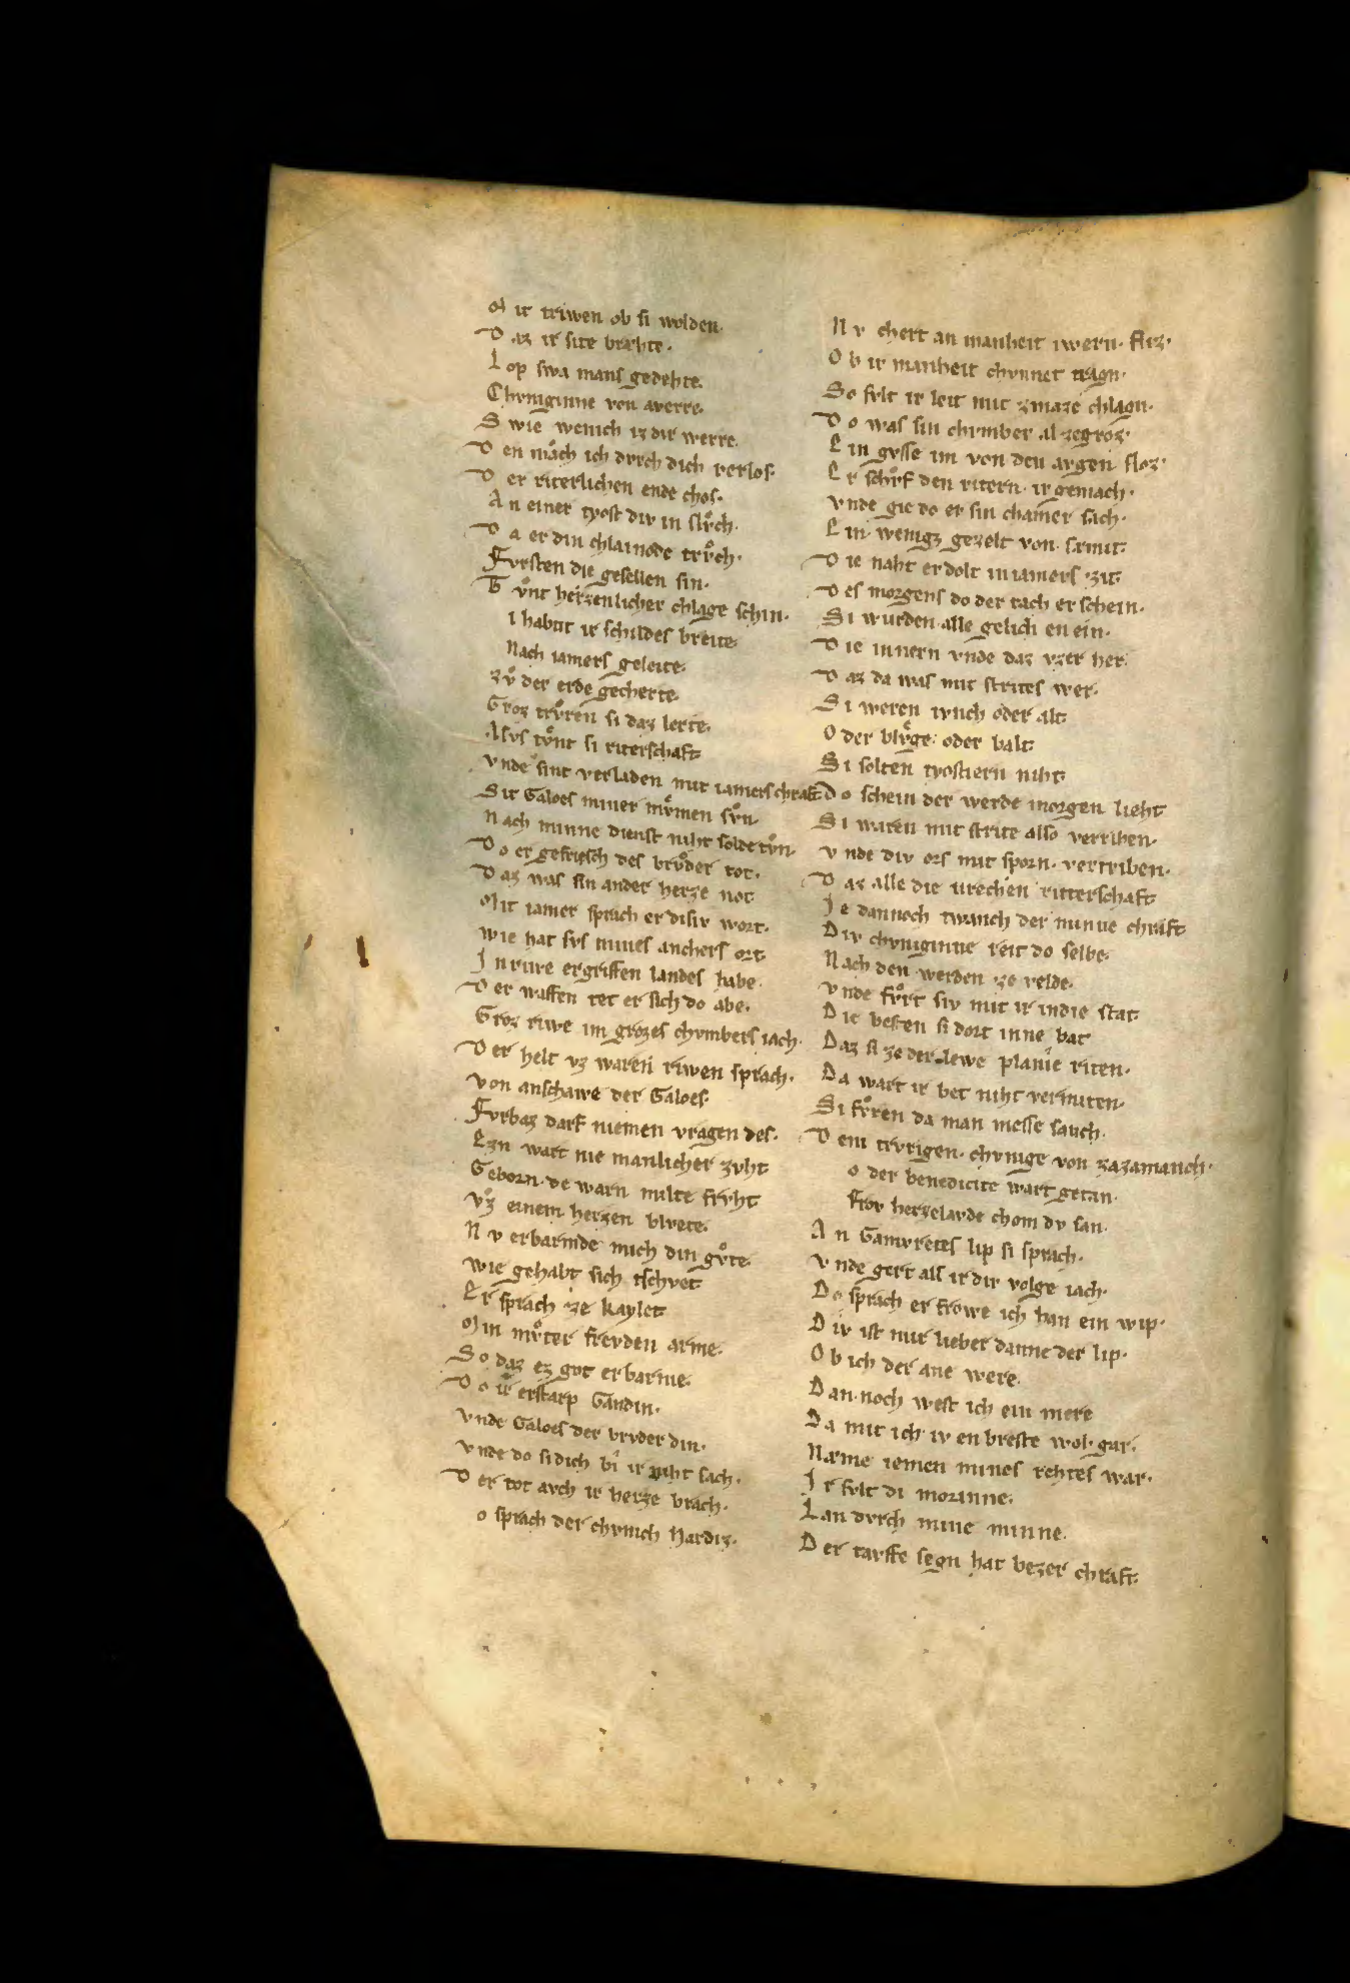 M it triwen ob si wolden·
D az ir site bræhte·
L op swa mans gedehte·
Chvniginne von averre·
S wie wenich iz dir werre·
D en mach ich dvrch dich verlos·
D er riterlichen ende chos·
A n einer tyost div in slvͦch·
D a er din chlainode trvͦch·
Fvrsten die gesellen sin·
T vͦnt herzenlicher chlage schin·
i habnt ir schildes breite·
Nach iamers geleite·
zvͦ der erde gecherte·
Groz trvͦren si daz lerte·
Alsvs tvͦnt si riterschaft·
vnde sint verladen mit iamers chraft·
Sit Galoes miner mvͦmen svͦn
Nach minne dienst niht solde tvͦn·
D o er gefriesch des brvͦder tot·
D az was sin ander herze not
Mit iamer sprach er disiv wort·
wie hat svs mines anchers ort·
J n rivre ergriffen landes habe·
D er waffen tet er sich do abe·
Groz riwe im grozes chvmbers iach·
D er helt vz waren riwen sprach·
von anschawe der Galoes·
Fvrbaz darf niemen vragen des·
Ezn wart nie manlicher zvht
Geborn· de warn milte frvht
vͦz einem herzen blvete·
N v erbarmde mich din gvͦte·
wie gehabt sich tschvet
Er sprach ze kaylet
Min mvͦter frevden arme·
So daz ez got erbarme·
D o ir erstarp Gandin·
vnde Galoes der brvder din·
vnde do si dich bi ir niht sach·
D er tot avch ir herze brach·
o sprach der chvnich Hardiz·
N v chert an manheit iwern· fliz·
O b ir manheit chvnnet tragn·
So svlt ir leit mit zmaze chlagn·
D o was sin chvmber al zegroz·
Ein gvsse im von den avgen floz·
Er schvͦf den ritern· ir gemach·
vnde gie do er sin chamer sach·
Ein· wenigz gezelt von· sæmit·
D ie naht er dolt in iamers zit·
D es morgens do der tach erschein·
Si wurden alle gelich en ein·
D ie innern vnde daz vzer her·
D az da was mit strites wer·
Si weren ivnch oder alt·
O der blvͦge· oder balt·
Si solten tyostiern niht·
Do schein der werde morgen lieht
Si waren mit strite also verriben·
vnde div ors mit sporn· vertriben·
D az alle die vrechen ritterschaft·
Je dannoch twanch der minne chraft·
Div chvniginne reit do selbe·
Nach den werden ze velde·
vnde fvͦrt siv mit ir in die stat·
Die besten si dort inne bat
Daz si ze der lewe planie riten·
Da wart ir bet niht vermiten·
Si fvͦren da man messe sanch·
D em trvrigen· chvnige von zazamanch·
o der benedicite wart getan·
Frov herzelavde chom dv san·
A n Gamvretes lip si sprach·
vnde gert als ir div volge iach·
Do sprach er frowe ich han ein wip·
Div ist mir lieber danne der lip·
Ob ich der ane were·
Dan· noch west ich ein mere
Da mit ich iv enbreste wol· gar·
Næme iemen mines rehtes war·
J r svlt di morinne·
Lan dvrch mine minne·
Der tavffe segn hat bezer chraft·